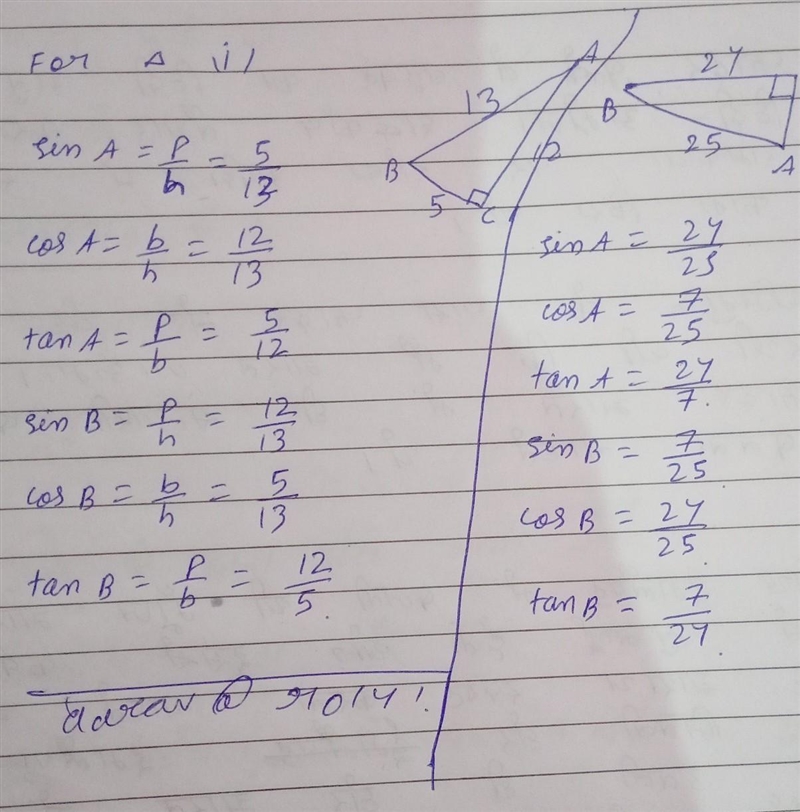 For Δ
13
A
B
12
5
C
sin A = p/h = 5/13
cos A = b/h = 12/13
tan A = p/b = 5/12
sin B = p/h = 12/13
cos B = b/h = 5/13
tan B = p/b = 12/5.
24
B
25
A
sin A = 24/25
cos A = 7/25
tan A = 24/7.
sin B = 7/25
cos B = 24/25.
tan B = 7/24.